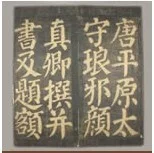 唐平原太
守琅邪顏
真卿撰并
書及題額